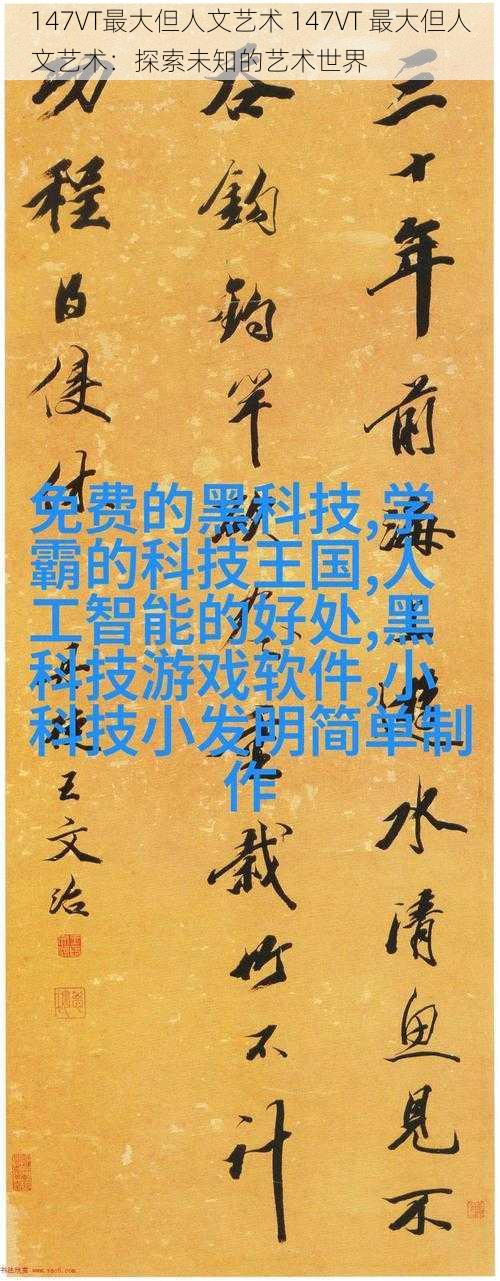 147VT最大但人文艺术 147VT 最大但人
文艺术：探索未知的艺术世界
三十年前海遊水清鱼见不
吞鈎釣竿重栽竹不计
功程便休
王文治
免费的黑科技,学
霸的科技王国,人
工智能的好处,黑
科技游戏软件,小
科技小发明简单制
作
书法欣赏 www.yac8.com